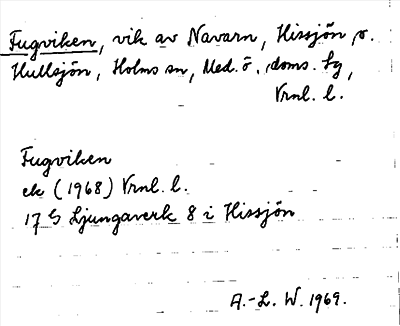 Fugviken, vik av Navarn, Hissjön o.
Hullsjön, Holms sn, Med. ö. doms. bg,
Vrnl. l.
Fugviken
ek (1968) Vrnl. l.
17 G Ljungaverk 8 i Hissjön
A.-L. W. 1969.